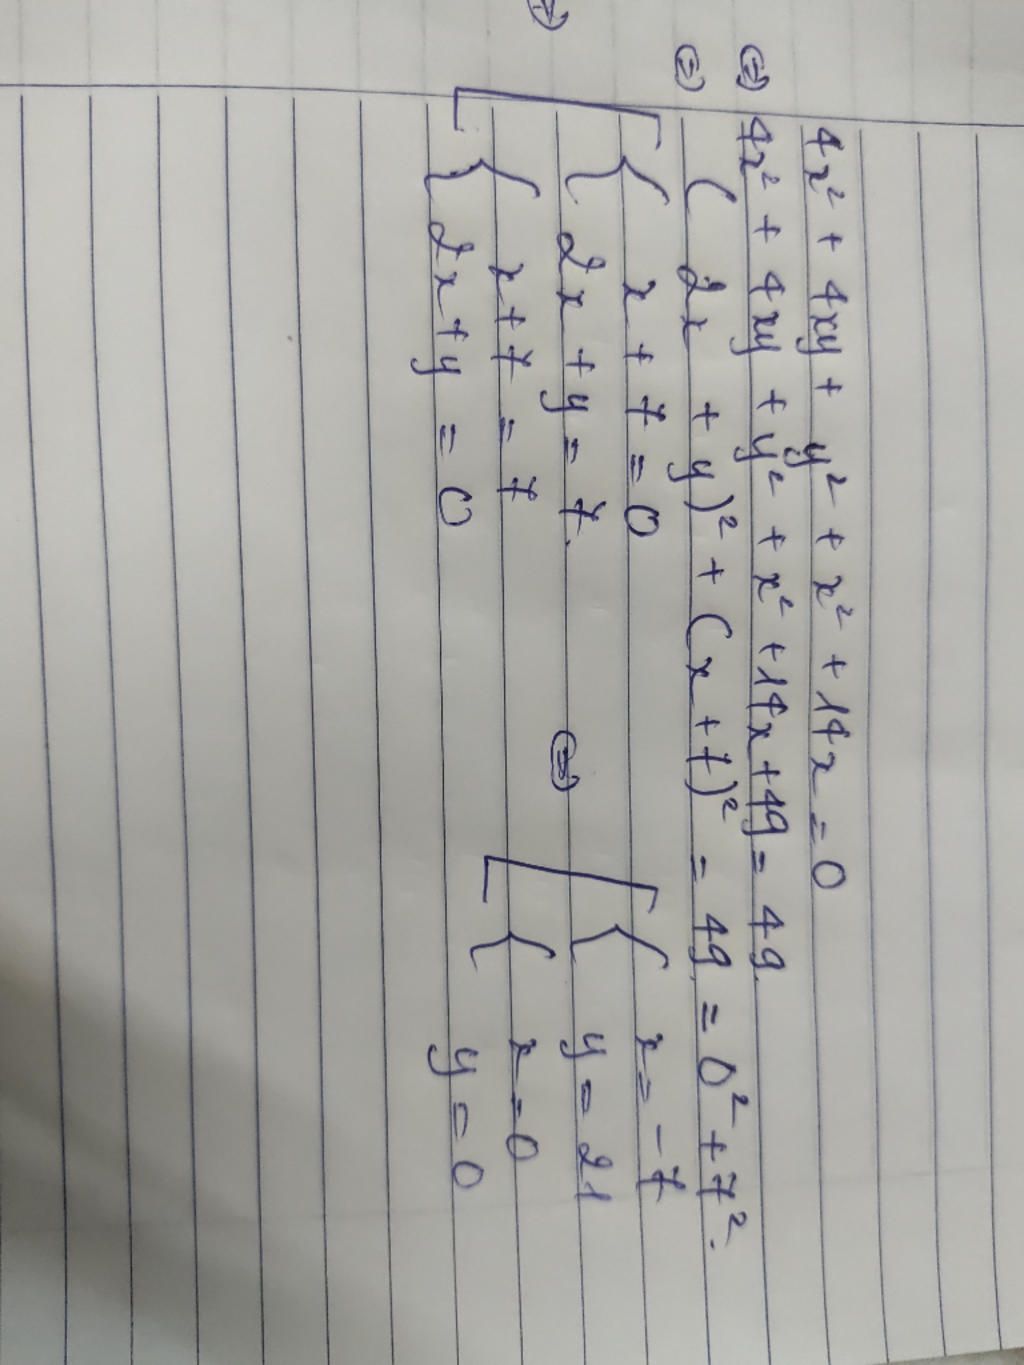 4x² + 4xy + y² + x² + 14x = 0
⇔ 4x² + 4xy + y² + x² + 14x + 49 = 49
⇔ (2x + y)² + (x + 7)² = 49 = 0² + 7².
⇔ [ { x + 7 = 0
2x + y = 7.
{ x + 7 = 7
2x + y = 0
⇔ [ { x = -7
y = 21
{ x = 0
y = 0